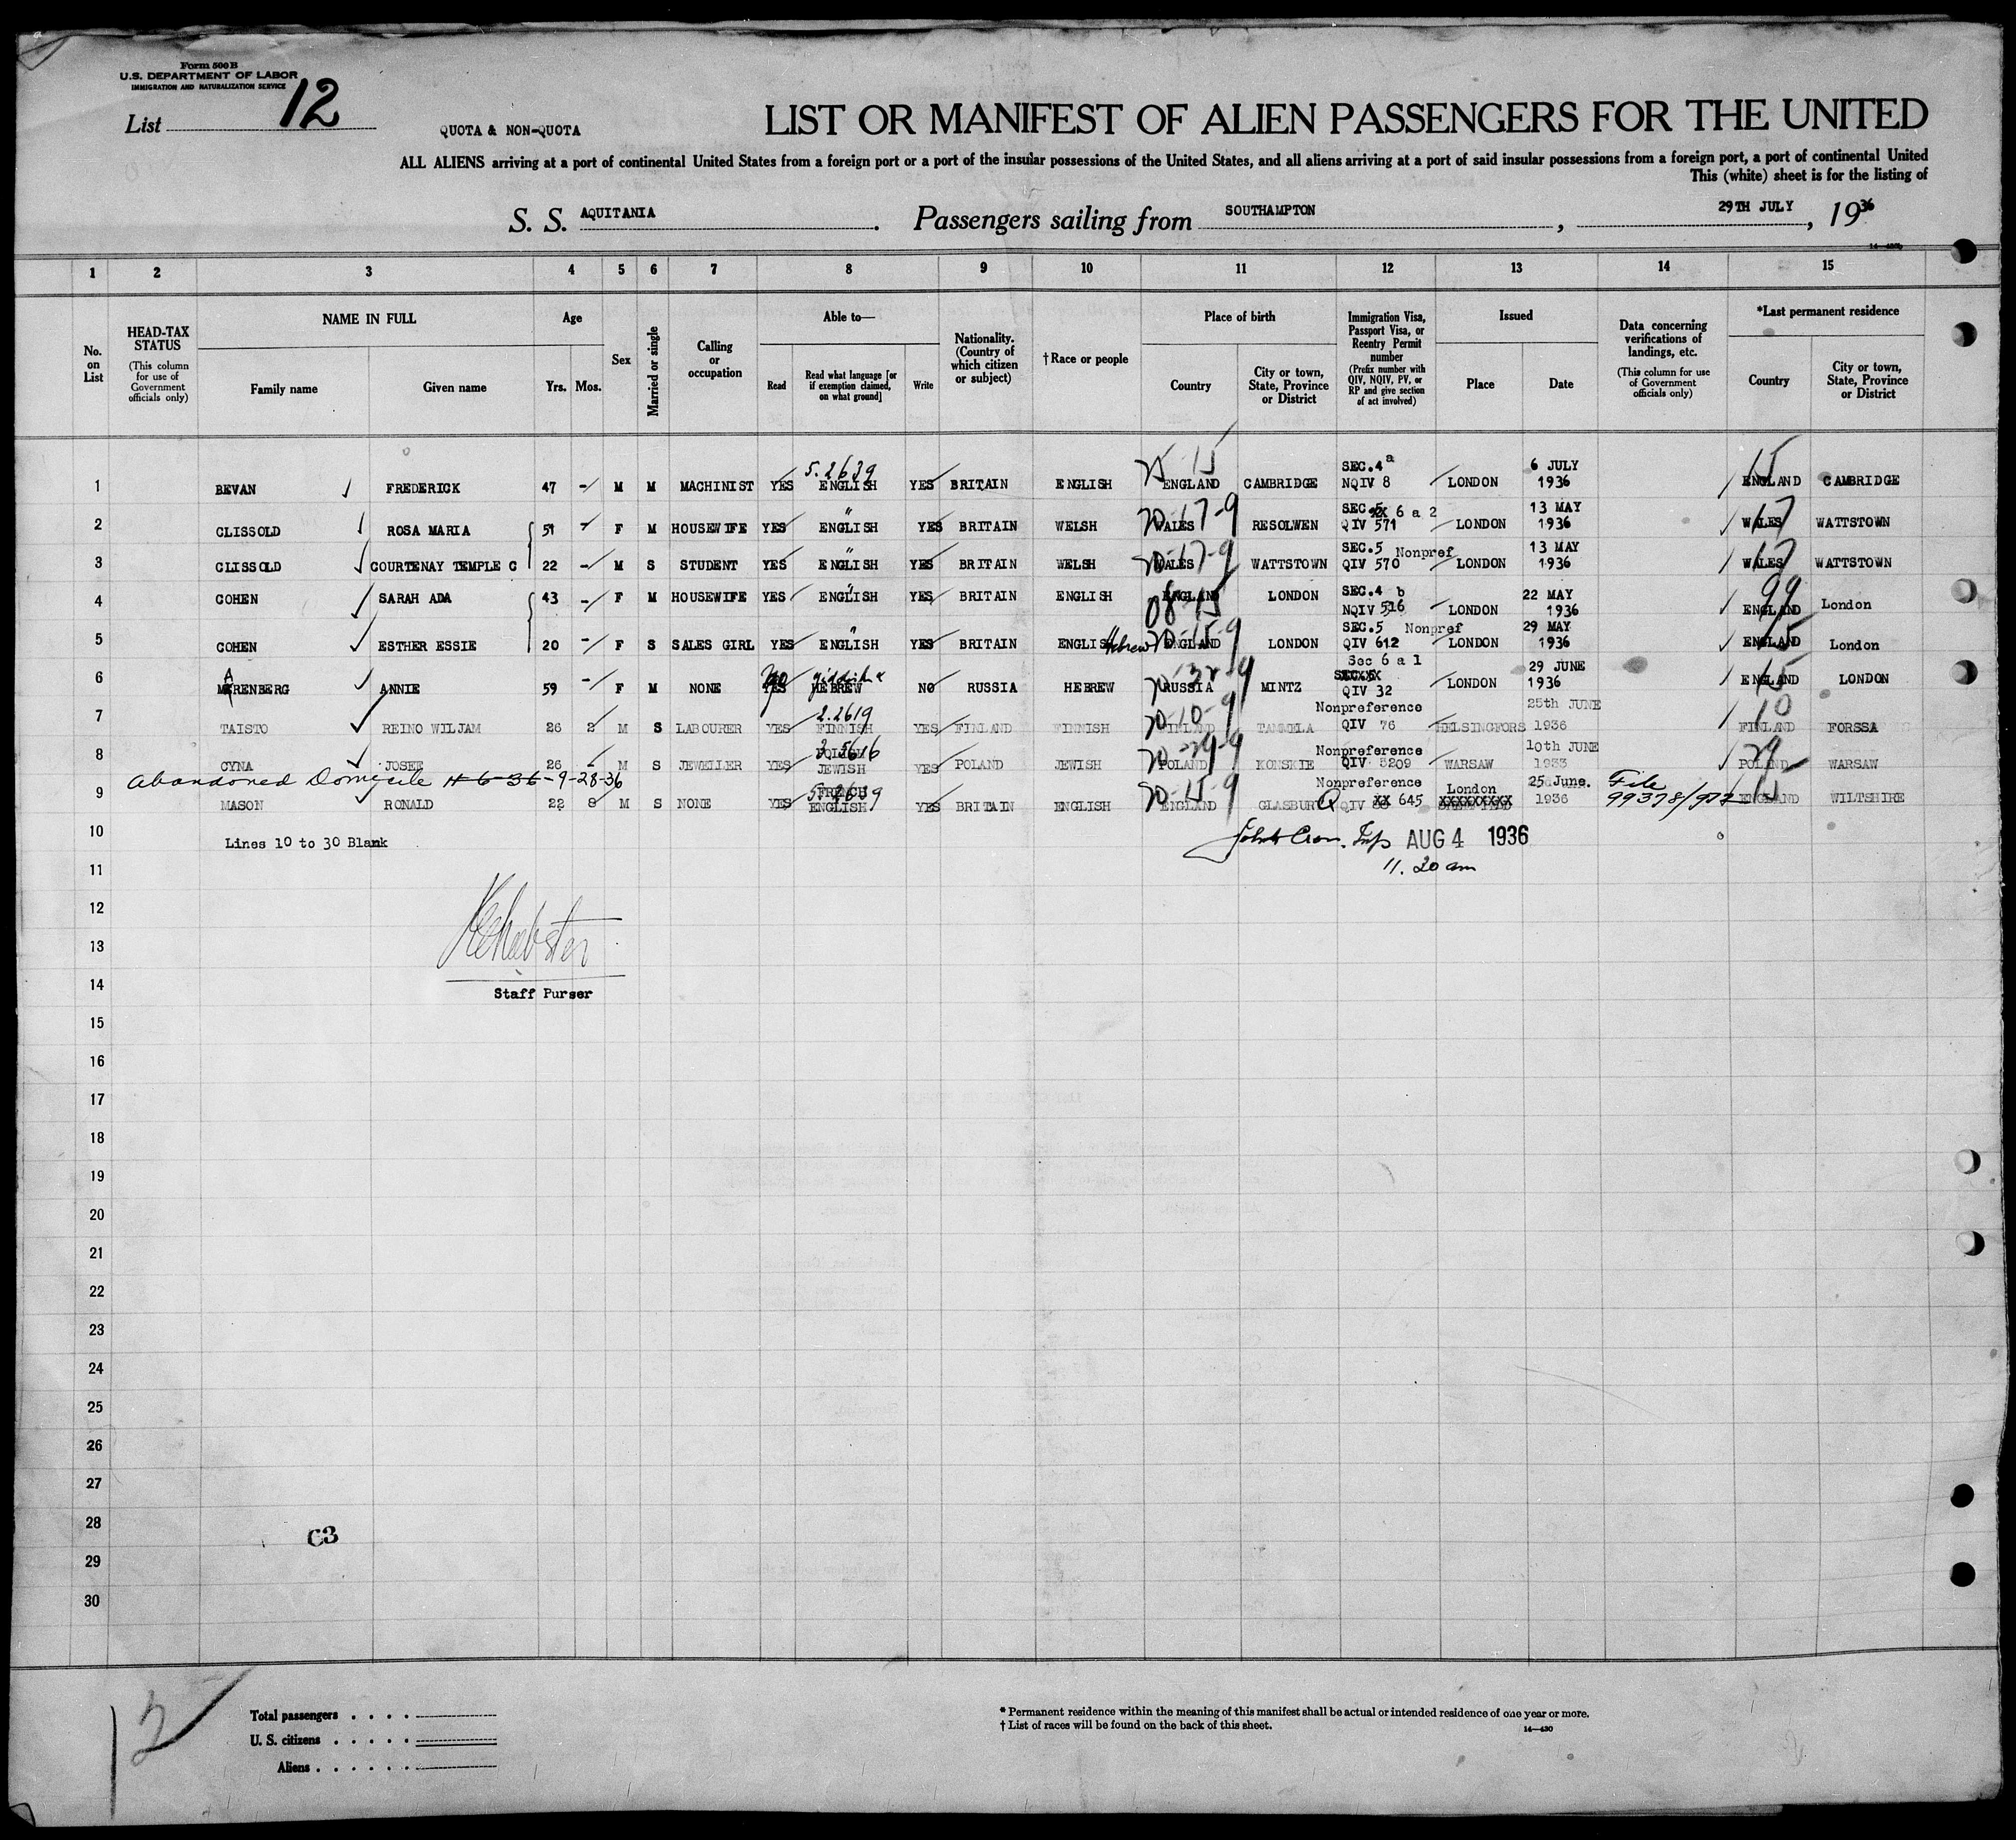 Form 500B
U.S. DEPARTMENT OF LABOR
IMMIGRATION AND NATURALIZATION SERVICE
List 12
QUOTA & NON-QUOTA
LIST OR MANIFEST OF ALIEN PASSENGERS FOR THE UNITED
ALL ALIENS arriving at a port of continental United States from a foreign port or a port of the insular possessions of the United States, and all aliens arriving at a port of said insular possessions from a foreign port, a port of continental United
This (white) sheet is for the listing of
S. S. AQUITANIA. Passengers sailing from SOUTHAMPTON, 29TH JULY, 1936
1 2 3 4 5 6 7 8 9 10 11 12 13 14 15
No. on List
HEAD-TAX STATUS (This column for use of Government officials only)
NAME IN FULL
Family name Given name
Age
Yrs. Mos.
Sex
Married or single
Calling or occupation
Able to—
Read Read what language [or if exemption claimed, on what ground] Write
Nationality. (Country of which citizen or subject)
†Race or people
Place of birth
Country City or town, State, Province or District
Immigration Visa, Passport Visa, or Reentry Permit number (Prefix number with QIV, NQIV, PV, or RP and give section of act involved)
Issued
Place Date
Data concerning verifications of landings, etc. (This column for use of Government officials only)
*Last permanent residence
Country City or town, State, Province or District
5.2639 25-15 SEC.4 a 6 JULY 15
1 BEVAN FREDERICK 47 - M M MACHINIST YES ENGLISH YES BRITAIN ENGLISH ENGLAND CAMBRIDGE NQIV 8 LONDON 1936 ENGLAND CAMBRIDGE
" 20-17-9 SEC.5 XX 6 a 2 13 MAY 17
2 CLISSOLD ROSA MARIA 51 - F M HOUSEWIFE YES ENGLISH YES BRITAIN WELSH WALES RESOLWEN QIV 571 LONDON 1936 WALES WATTSTOWN
" 20-17-9 SEC.5 Nonpref 13 MAY 17
3 CLISSOLD COURTENAY TEMPLE C 22 - M S STUDENT YES ENGLISH YES BRITAIN WELSH WALES WATTSTOWN QIV 570 LONDON 1936 WALES WATTSTOWN
" 08-15 SEC.4 b 22 MAY 99
4 COHEN SARAH ADA 43 - F M HOUSEWIFE YES ENGLISH YES BRITAIN ENGLISH ENGLAND LONDON NQIV 516 LONDON 1936 ENGLAND London
" Hebrew 20-15-9 SEC.5 Nonpref 29 MAY 15
5 COHEN ESTHER ESSIE 20 - F S SALES GIRL YES ENGLISH YES BRITAIN ENGLISH ENGLAND LONDON QIV 612 LONDON 1936 ENGLAND London
A no yiddish Sec 6 a 1 29 JUNE 15
6 MARENBERG ANNIE 59 - F M NONE YES HEBREW NO RUSSIA HEBREW RUSSIA MINTZ QIV 32 LONDON 1936 ENGLAND LONDON
2.2619 20-10-9 Nonpreference 25th JUNE 10
7 TAISTO REINO WILJAM 26 2 M S LABOURER YES FINNISH YES FINLAND FINNISH FINLAND TAMMELA QIV 76 HELSINGFORS 1936 FINLAND FORSSA
POLISH 20-29-9 Nonpreference 10th JUNE 29
8 CYNA JOSEF 26 - M S JEWELLER YES JEWISH YES POLAND JEWISH POLAND KONSKIE QIV 5209 WARSAW 1933 POLAND WARSAW
Abandoned Domicile H-6-36-9-28-36
FRENCH 5.2639 20-15-9 Nonpreference London 25 June. File 15
9 MASON RONALD 22 8 M S NONE YES ENGLISH YES BRITAIN ENGLISH ENGLAND GLASBURY QIV XX 645 XXXXXXXXX 1936 99378/972 ENGLAND WILTSHIRE
10 Lines 10 to 30 Blank
AUG 4 1936
11 11.20 am
12
13
14 Staff Purser
15
16
17
18
19
20
21
22
23
24
25
26
27
28 C3
29
30
12
Total passengers
U. S. citizens
Aliens
* Permanent residence within the meaning of this manifest shall be actual or intended residence of one year or more.
† List of races will be found on the back of this sheet. 14—430